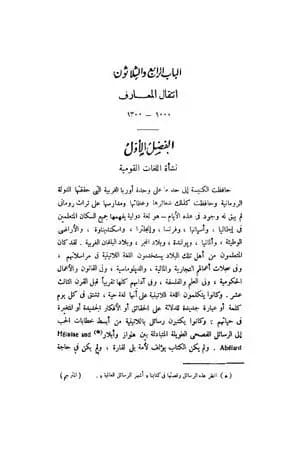 الباب الرابع والثلاثون
انتقال المعارف
١٠٠٠ – ١٣٠٠
الفصل الأول
نشأة اللغات القومية
حافظت الكنيسة إلى حد ما على وحدة أوربا الغربية التى حققتها الدولة
الرومانية وحافظت كذلك شعائرها وعظاتها ومدارسها على تراث رومانى
لم يبق له وجود فى هذه الأيام – هو لغة دولية يفهمها جميع السكان المتعلمين
فى إيطاليا ، وأسپانيا ، وفرنسا ، وإنجلترا ، واسكنديناوة ، والأراضى
الوطيئة ، وألمانيا ، وپولندة ، وبلاد المجر ، وبلاد البلقان الغربية . لقد كان
المتعلمون من أهل تلك البلاد يستخدمون اللغة اللاتينية فى مراسلاتهم ،
وفى سجلات أعمالهم التجارية والمالية ، والدبلوماسية ، وفى القانون والأعمال
الحكومية ، وفى العلم والفلسفة ، وفى آدابهم كلها تقريباً قبل القرن الثالث
عشر . وكانوا يتكلمون اللغة اللاتينية على أنها لغة حية ، تشتق فى كل يوم
كلمة أو عبارة جديدة للدلالة على الحقائق أو الأفكار الجديدة أو المتغيرة
فى حياتهم ؛ وكانوا يكتبون رسائل باللاتينية من أبسط خطابات الحب
إلى الرسائل الفصحى الطويلة المتبادلة بين هلواز وأبلار (*) Héloise and
Abélard . ولم يكن الكتاب يؤلف لأمة بل لقارة ، ولم يكن فى حاجة
( * ) انظر هذه الرسائل وقصتها فى كتابنا « أشهر الرسائل العالمية » . ( المترجم )